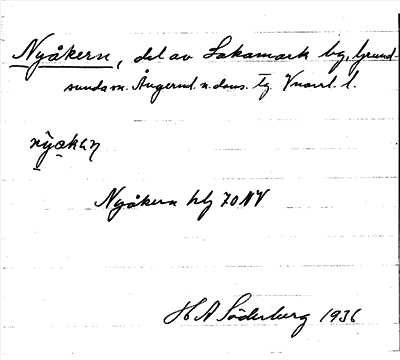 Nyåkern, del av Lakamark by, Grund-
sunda sn. Ångerml. n. doms. tg. Vnorrl. l.
Nyåkern hbl 70 NV
H A Söderberg 1936